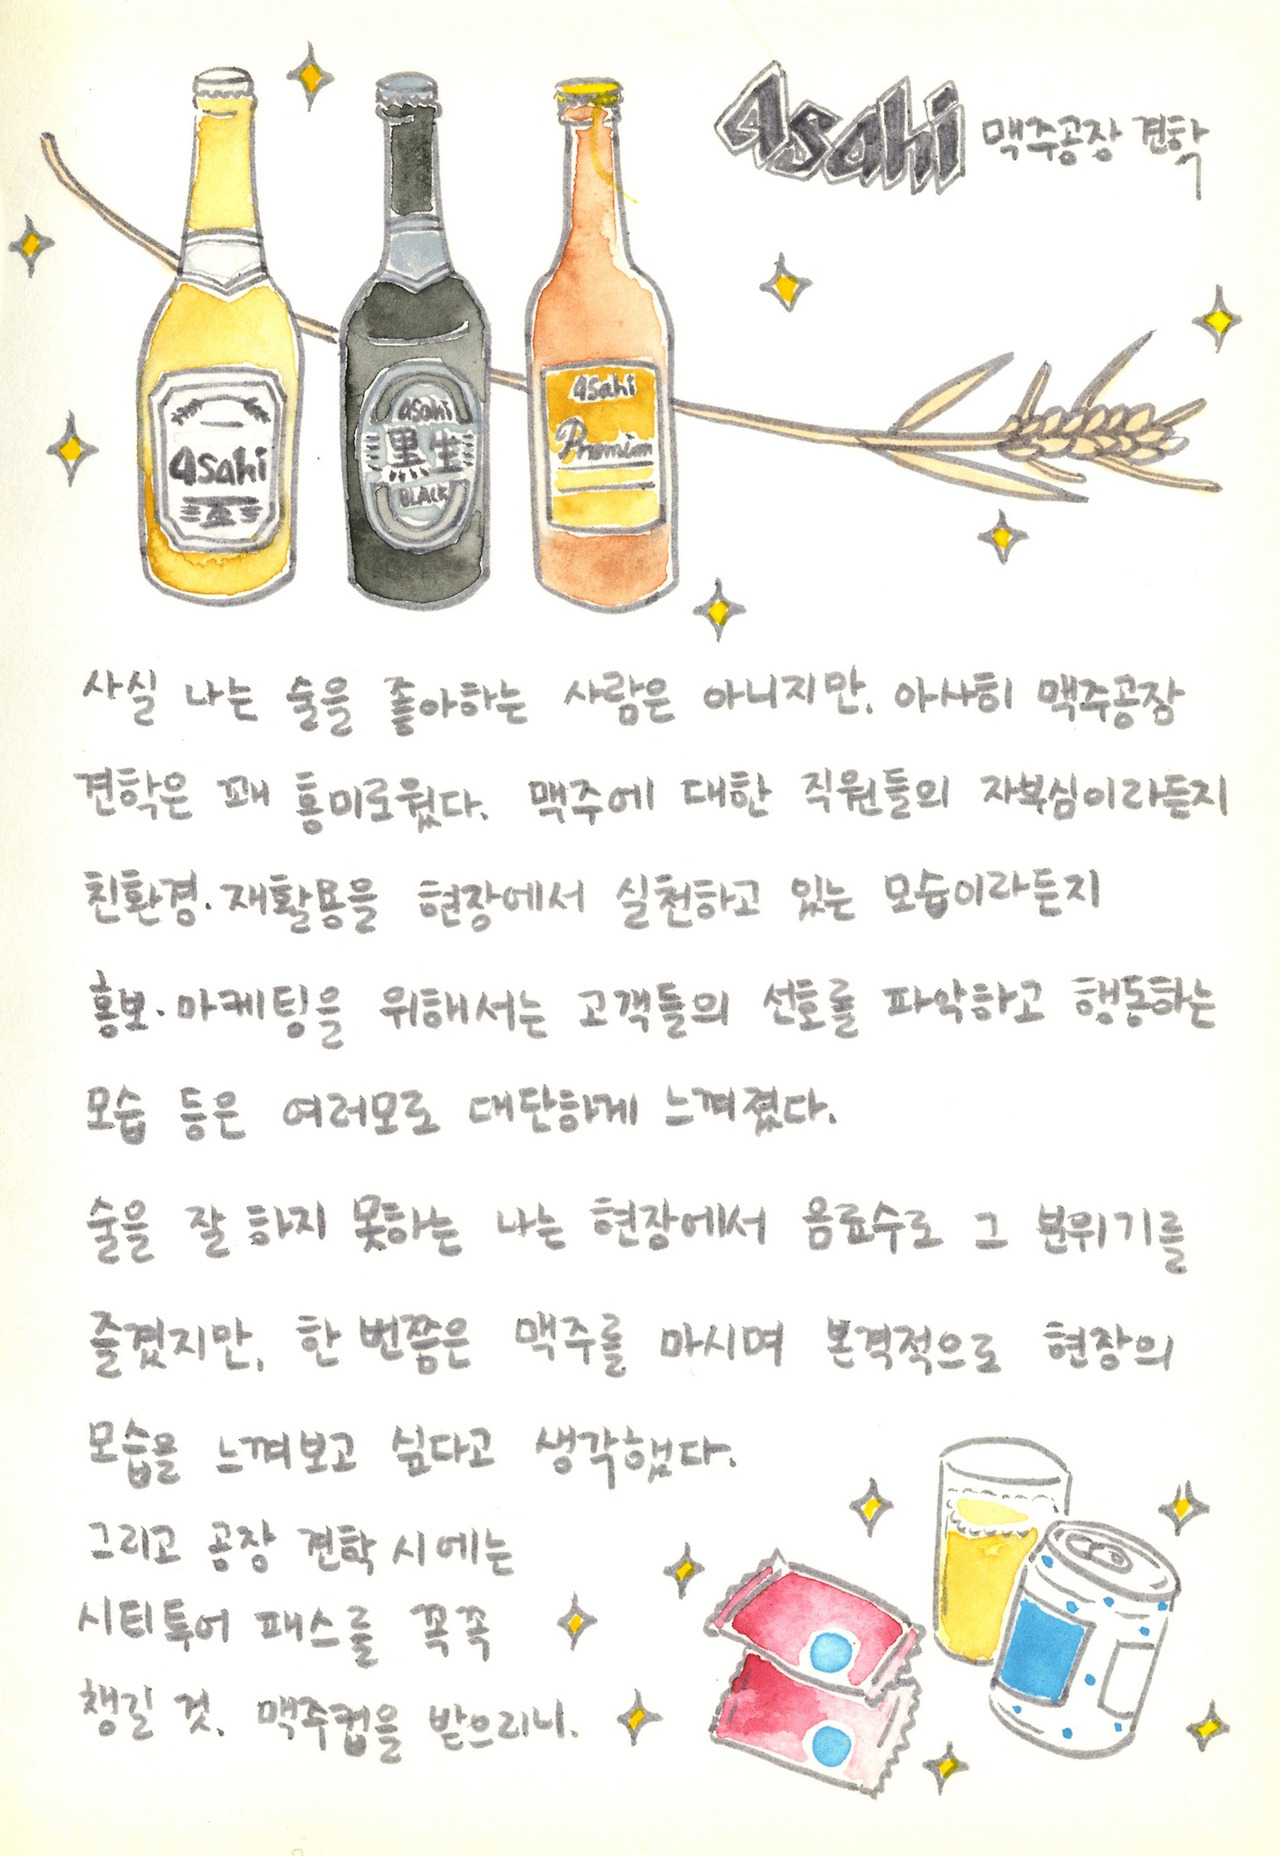 Asahi 맥주공장 견학
Asahi
Asahi
黒生
BLACK
Asahi
Premium
사실 나는 술을 좋아하는 사람은 아니지만, 아사히 맥주공장
견학은 꽤 흥미로웠다. 맥주에 대한 직원들의 자부심이라든지
친환경·재활용을 현장에서 실천하고 있는 모습이라든지
홍보·마케팅을 위해서는 고객들의 선호를 파악하고 행동하는
모습 등은 여러모로 대단하게 느껴졌다.
술을 잘 하지 못하는 나는 현장에서 음료수로 그 분위기를
즐겼지만, 한 번쯤은 맥주를 마시며 본격적으로 현장의
모습을 느껴보고 싶다고 생각했다.
그리고 공장 견학 시에는
시티투어 패스를 꼭꼭
챙길 것. 맥주컵을 받으리니.